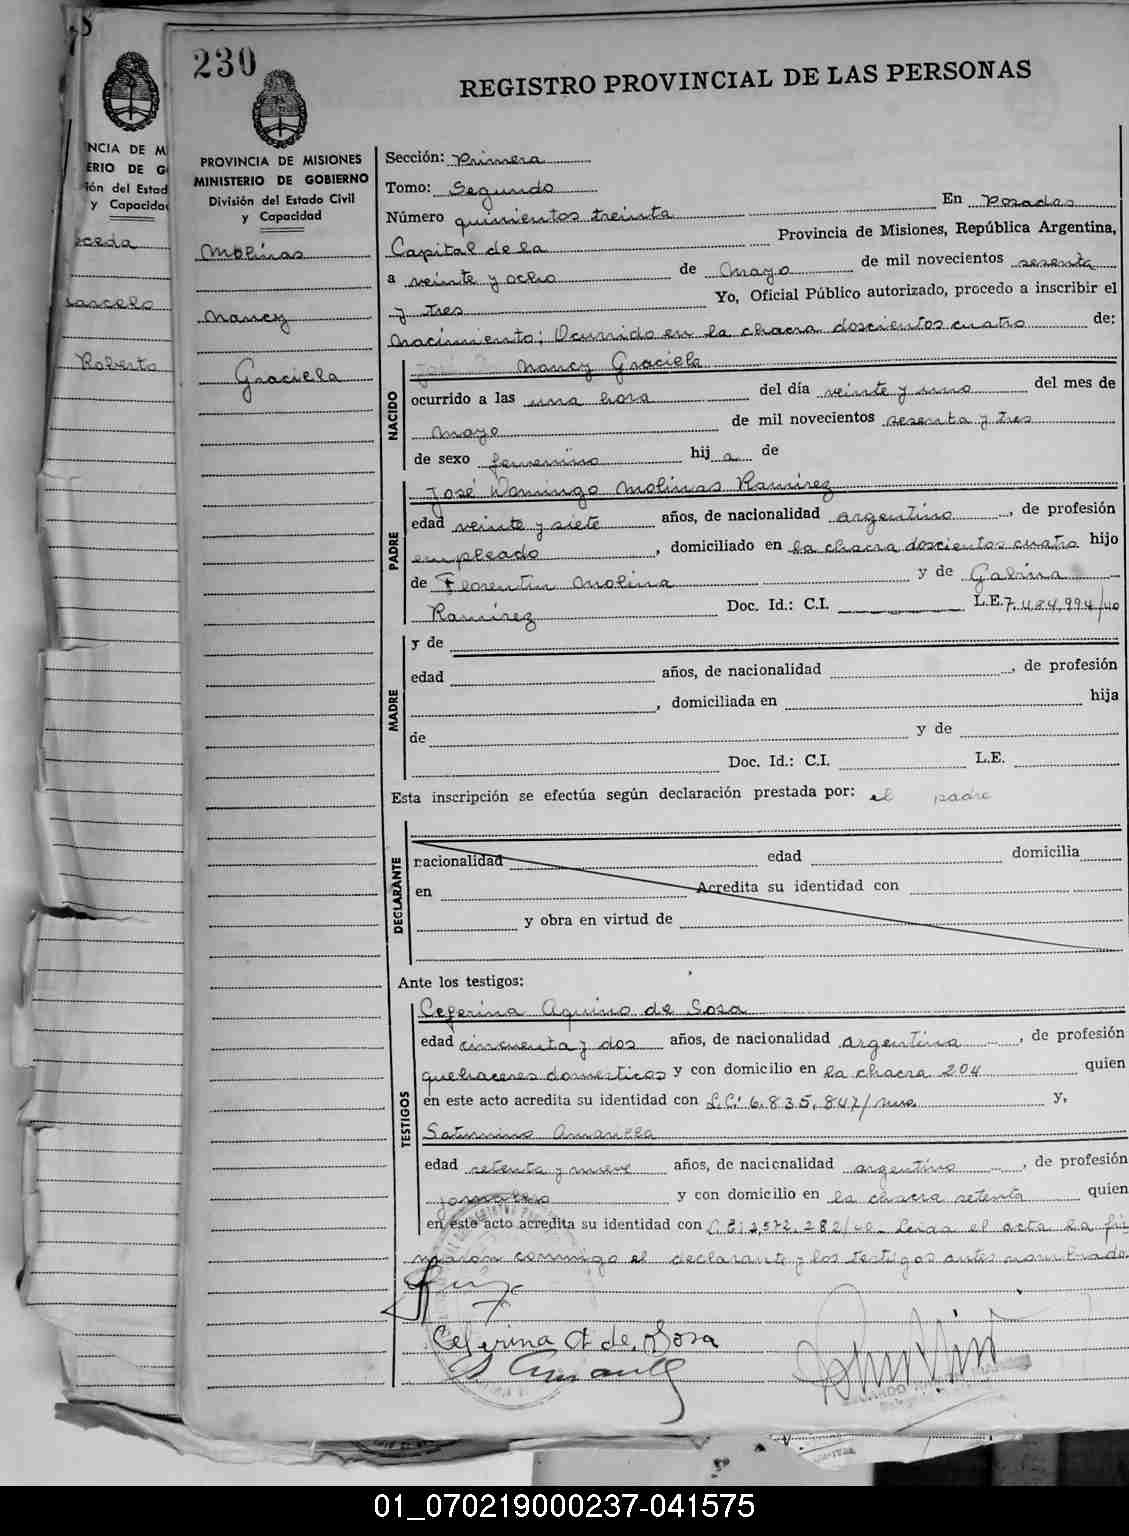 230
REGISTRO PROVINCIAL DE LAS PERSONAS
NCIA DE M
ERIO DE G
ión del Estad
y Capacida
ceda
arcelo
Roberto
PROVINCIA DE MISIONES
MINISTERIO DE GOBIERNO
División del Estado Civil
y Capacidad
Molinas
Nancy
Graciela
Sección: Primera
Tomo: Segundo
Número quinientos treinta En Posadas
Capital de la Provincia de Misiones, República Argentina,
a veinte y ocho de Mayo de mil novecientos sesenta
y tres Yo, Oficial Público autorizado, procedo a inscribir el
nacimiento; Ocurrido en la chacra doscientos cuatro de:
NACIDO
Nancy Graciela
ocurrido a las una hora del día veinte y uno del mes de
Mayo de mil novecientos sesenta y tres
de sexo femenino hij a de
PADRE
José Domingo Molinas Ramírez
edad veinte y siete años, de nacionalidad argentino, de profesión
empleado, domiciliado en la chacra doscientos cuatro hijo
de Florentin Molina y de Gabina
Ramírez Doc. Id.: C.I. L.E. 7.484.994/40
MADRE
y de
edad años, de nacionalidad , de profesión
, domiciliada en hija
de y de
Doc. Id.: C.I. L.E.
Esta inscripción se efectúa según declaración prestada por: el padre
DECLARANTE
nacionalidad edad domicilia
en Acredita su identidad con
y obra en virtud de
Ante los testigos:
TESTIGOS
Ceferina Aquino de Sosa
edad cincuenta y dos años, de nacionalidad argentina, de profesión
quehaceres domesticos y con domicilio en la chacra 204 quien
en este acto acredita su identidad con L.C: 6.835.847/ y,
Saturnino Amarilla
edad setenta y nueve años, de nacionalidad argentino, de profesión
jornalero y con domicilio en la chacra setenta quien
en este acto acredita su identidad con Leida el acta la fir
maron conmigo el declarante y los testigos antes nombrado
Ceferina A de Sosa
S Amarilla
01_070219000237-041575